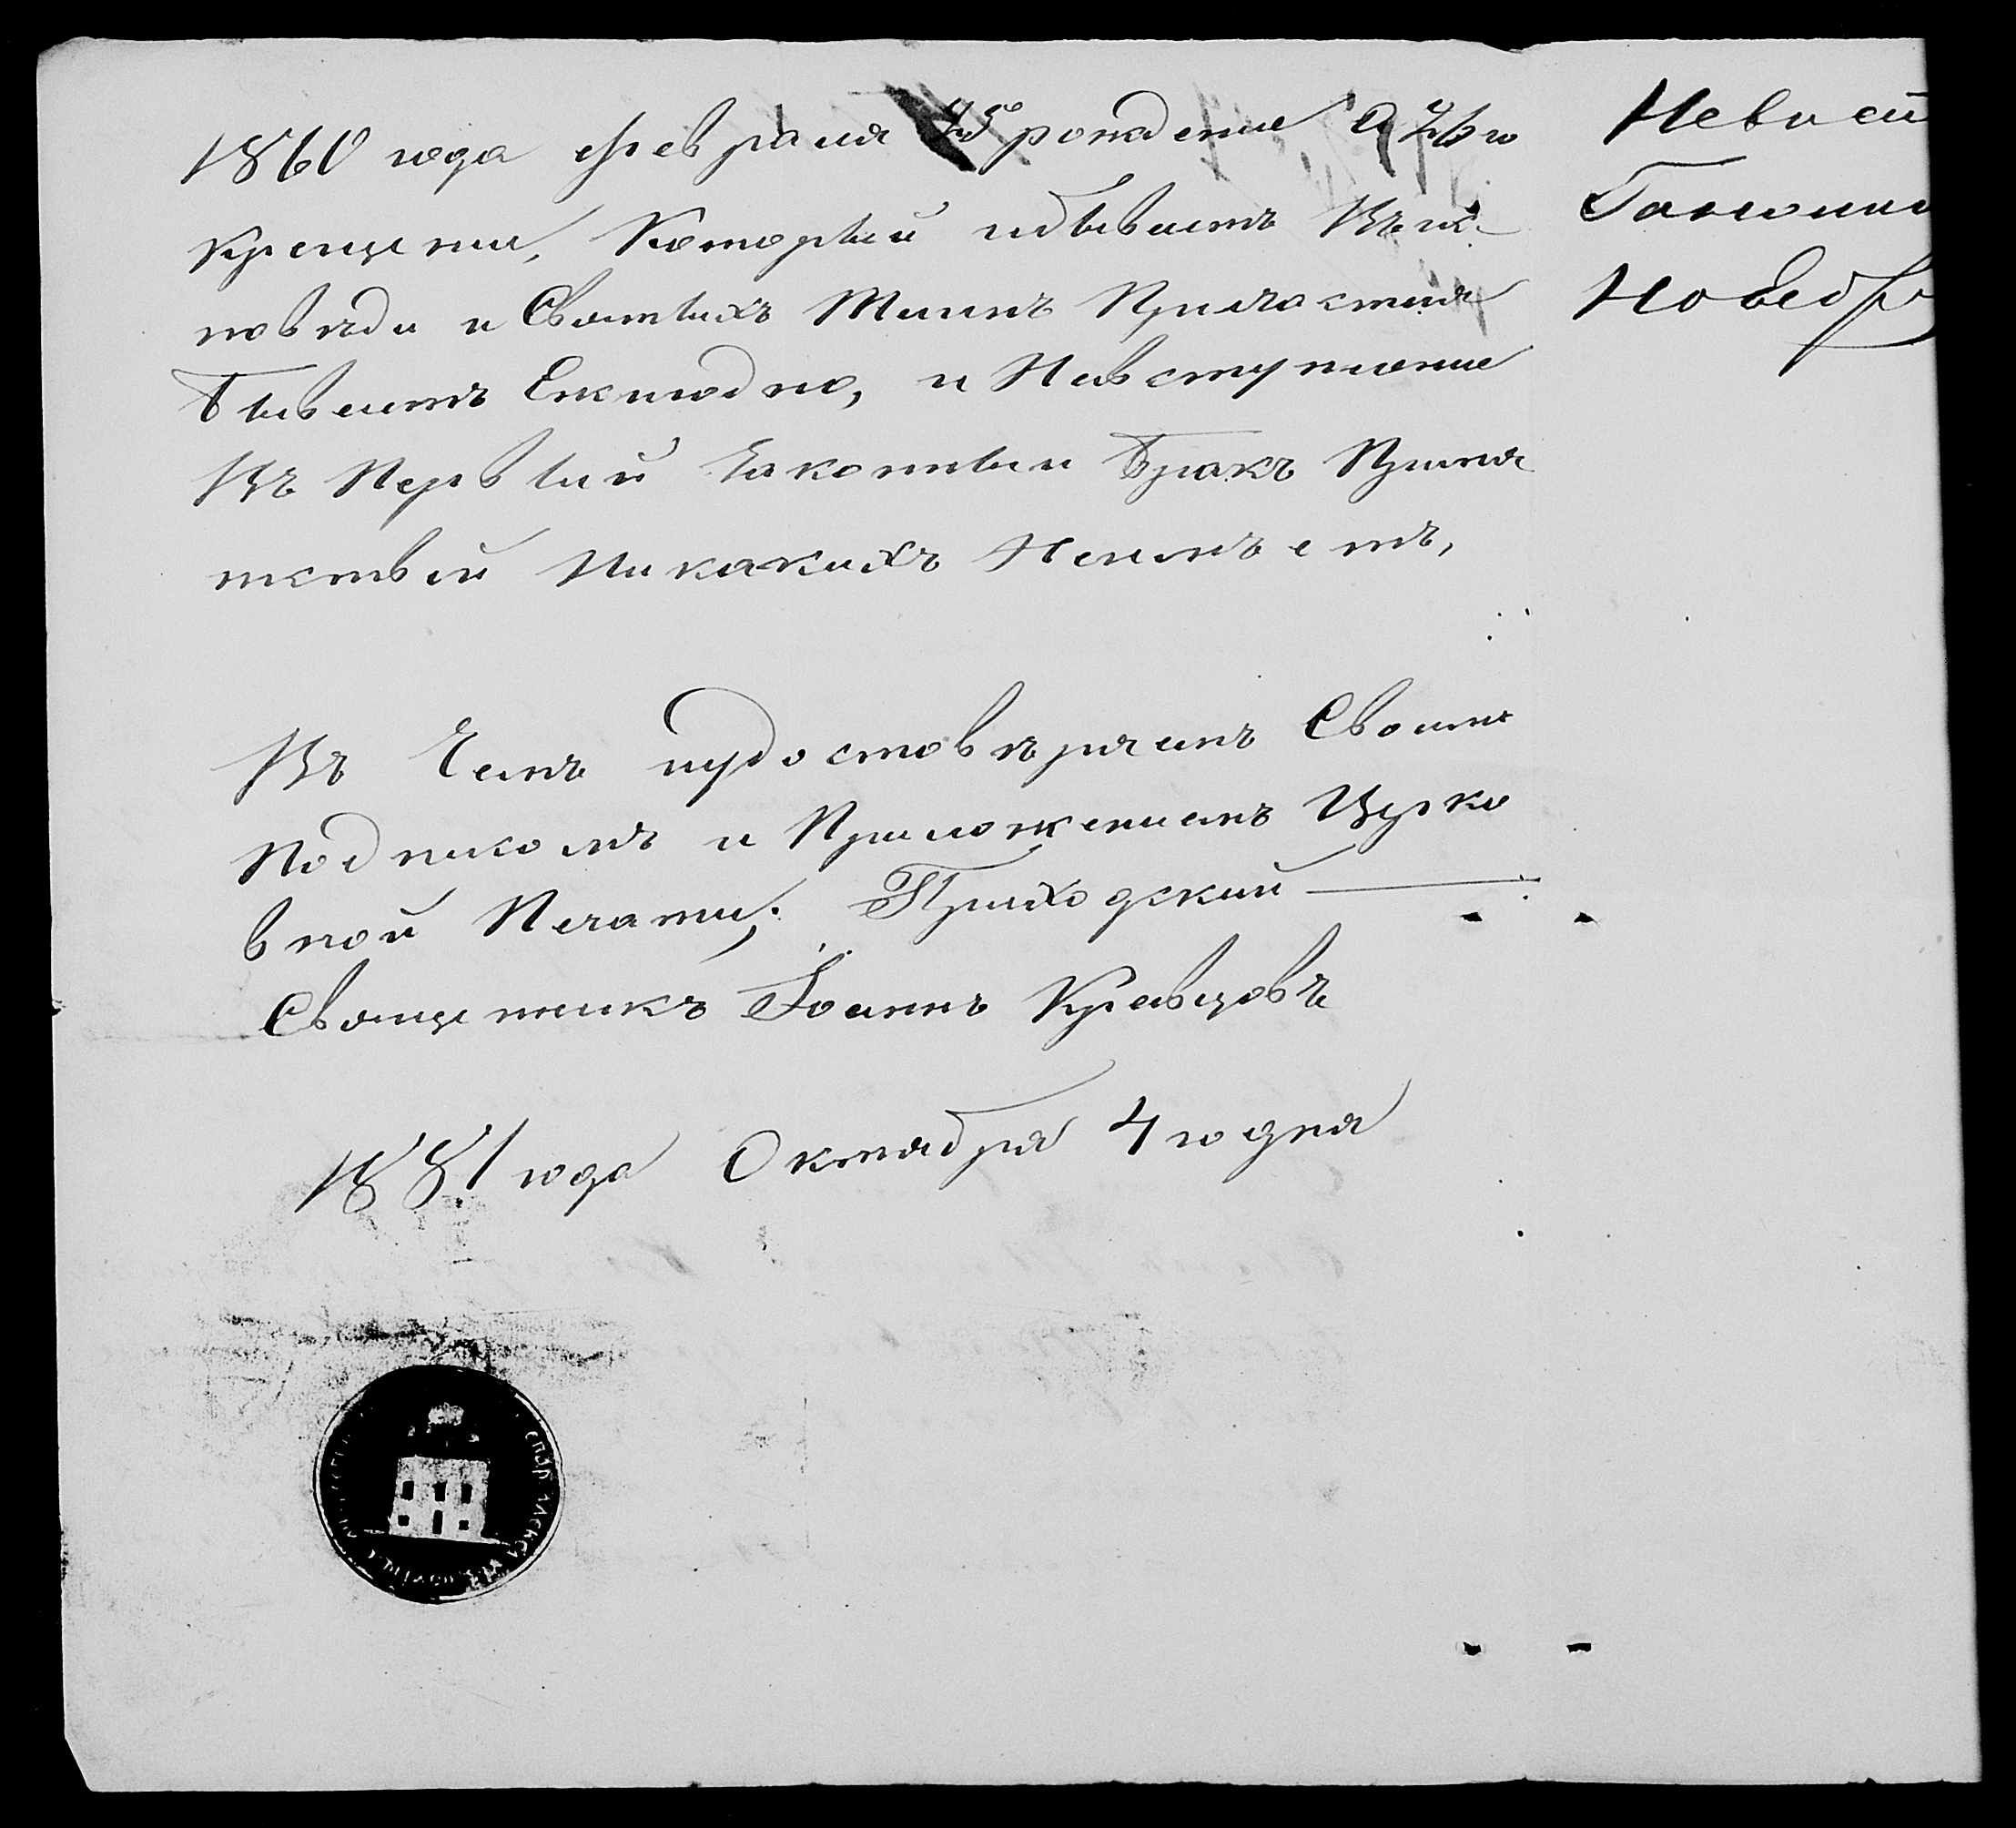 1860 года февраля 25го рожденie а 26го
Крещенъ, Который побываетъ Въ ис-
поведи и Святыхъ Таинъ Причастия
Бываетъ Ежегодно, и Навступление
Въ Первый Законный Бракъ Препя
тствий Никакихъ Неимъетъ,
Въ Чемъ и удостовъряемъ Своимъ
Подписомъ и Приложениемъ Церко
вной Печати; Приходский
Священникъ Iоаннъ Кравцовъ
1881 года Октября 4го дня